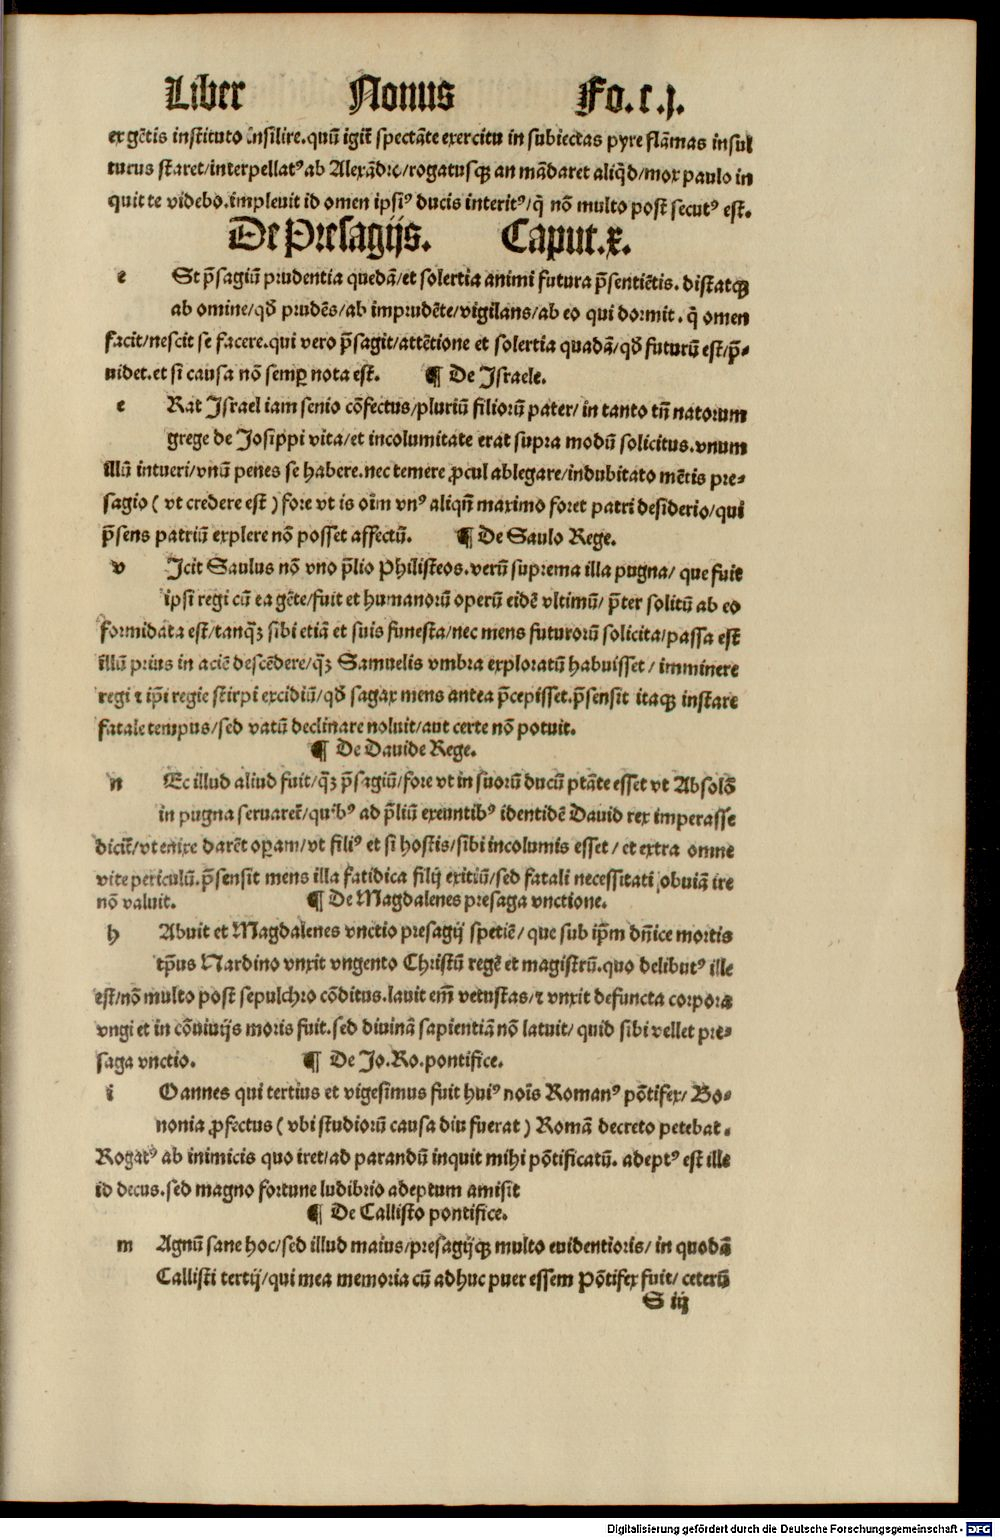 Liber Nonus Fo.c.j.
ex gētis instituto insilire.quū igit̄ spectāte exercitu in subiectas pyre flāmas insul
turus staret/interpellatꝰ ab Alexādro/rogatusqꝫ an mādaret aliq̄d/mox paulo in
quit te videbo.impleuit id omen ipsiꝰ ducis interitꝰ/q̄ nō multo post secutꝰ est.
De Presagijs. Caput.x.
e St p̄sagiū prudentia quedā/et solertia animi futura p̄sentiētis.distatqꝫ
ab omine/qđ prudēs/ab imprudēte/vigilans/ab eo qui dormit.q̄ omen
facit/nescit se facere.qui vero p̄sagit/attētione et solertia quadā/qđ futurū est/p̄-
uidet.et si causa nō semꝑ nota est. ¶ De Israele.
e Rat Israel iam senio cōfectus/pluriū filiorū pater/in tanto tn̄ natorum
grege de Josippi vita/et incolumitate erat supra modū solicitus.vnum
illū intueri/vnū penes se habere.nec temere ꝓcul ablegare/indubitato mētis pre-
sagio ( vt credere est ) fore vt is oīm vnꝰ aliqn̄ maximo foret patri desiderio/qui
p̄sens patriū explere nō posset affectū. ¶ De Saulo Rege.
v Icit Saulus nō vno p̄lio Philisteos.verū suprema illa pugna/ que fuit
ipsi regi cū ea gēte/fuit et humanorū operū eidē vltimū/ p̄ter solitū ab eo
formidata est/tanqꝫ sibi etiā et suis funesta/nec mens futurorū solicita/passa est
illū prius in aciē descēdere/qꝫ Samuelis vmbra exploratū habuisset / imminere
regi ⁊ ip̄i regie stirpi excidiū/qđ sagax mens antea p̄cepisset.p̄sensit itaqꝫ instare
fatale tempus/sed vatū declinare noluit/aut certe nō potuit.
¶ De Dauide Rege.
n Ec illud aliud fuit/qꝫ p̄sagiū/fore vt in suorū ducū ptāte esset vt Absolō
in pugna seruaret̄/quibꝰ ad p̄liū exeuntibꝰ identidē Dauid rex imperasse
dicit̄/vt enixe darēt oꝑam/vt filiꝰ et si hostis/sibi incolumis esset / et extra omne
vite periculū.p̄sensit mens illa fatidica filij exitiū/sed fatali necessitati obuiā ire
nō valuit. ¶ De Magdalenes presaga vnctione.
h Abuit et Magdalenes vnctio presagij spetiē/ que sub ip̄m dn̄ice mortis
tp̄us Nardino vnxit vngento Christū regē et magistrū.quo delibutꝰ ille
est/nō multo post sepulchro cōditus.lauit em̄ vetustas/⁊ vnxit defuncta corpora
vngi et in cōuiuijs moris fuit.sed diuinā sapientiā nō latuit/ quid sibi vellet pre-
saga vnctio. ¶ De Jo.Ro.pontifice.
i Oannes qui tertius et vigesimus fuit huiꝰ noīs Romanꝰ pōtifex/ Bo-
nonia ꝓfectus ( vbi studiorū causa diu fuerat ) Romā decreto petebat.
Rogatꝰ ab inimicis quo iret/ad parandū inquit mihi pōtificatū. adeptꝰ est ille
id decus.sed magno fortune ludibrio adeptum amisit
¶ De Callisto pontifice.
m Agnū sane hoc/sed illud maius/presagijqꝫ multo euidentioris/ in quodā
Callisti tertij/qui mea memoria cū adhuc puer essem Pōtifex fuit/ ceterū
S iij
Digitalisierung gefördert durch die Deutsche Forschungsgemeinschaft - DFG